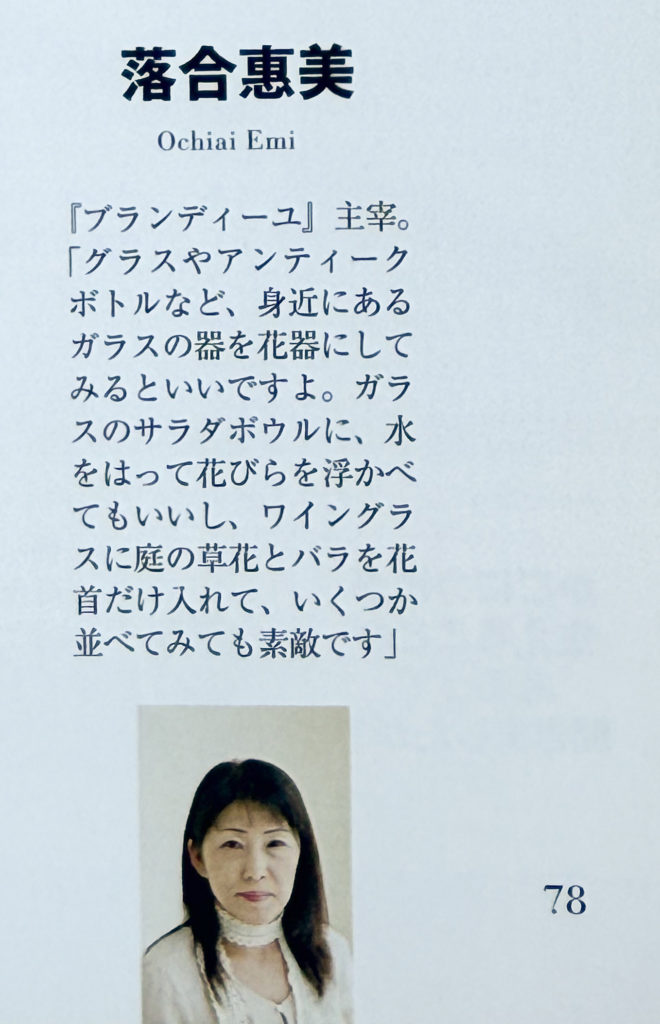 落合惠美
Ochiai Emi
『ブランディーユ』主宰。
「グラスやアンティーク
ボトルなど、身近にある
ガラスの器を花器にして
みるといいですよ。ガラ
スのサラダボウルに、水
をはって花びらを浮かべ
てもいいし、ワイングラ
スに庭の草花とバラを花
首だけ入れて、いくつか
並べてみても素敵です」
78